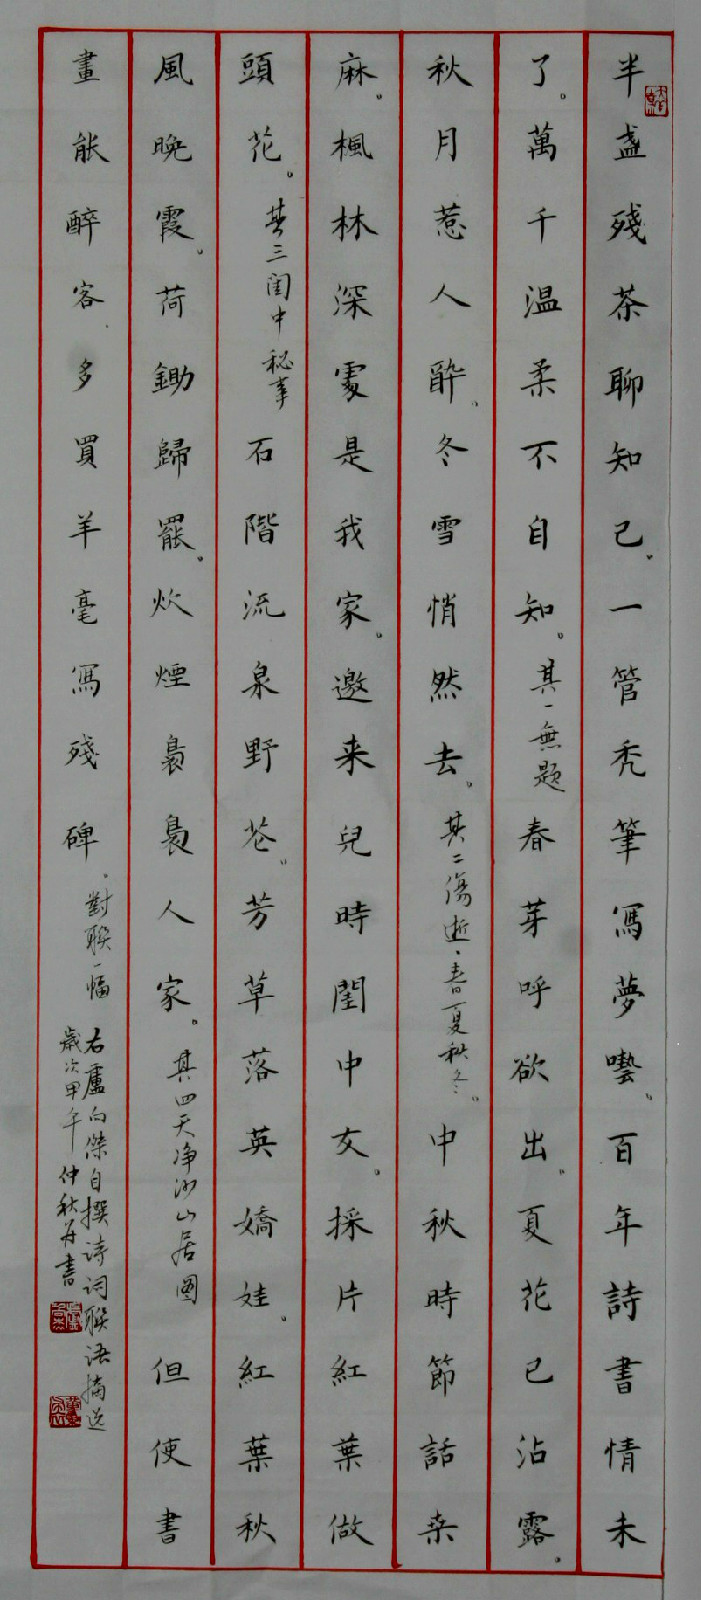 半盞殘茶聊知己。一管禿筆寫夢囈。百年詩書情未
了。萬千溫柔不自知。其一無題 春芽呼欲出。夏花已沾露。
秋月惹人醉。冬雪悄然去。其二傷逝、春夏秋冬。 中秋時節話桑
麻。楓林深處是我家。邀来兒時閨中女。採片紅葉做
頭花。其三閨中秘事 石階流泉野花。芳草落英嬌娃。紅葉秋
風晚霞。荷鋤歸罷。炊煙裊裊人家。其四天净沙山居圖 但使書
畫能醉客、多買羊毫寫殘碑。對聯一幅
右盧向傑自撰詩詞聯語摘选
歲次甲午仲秋并書